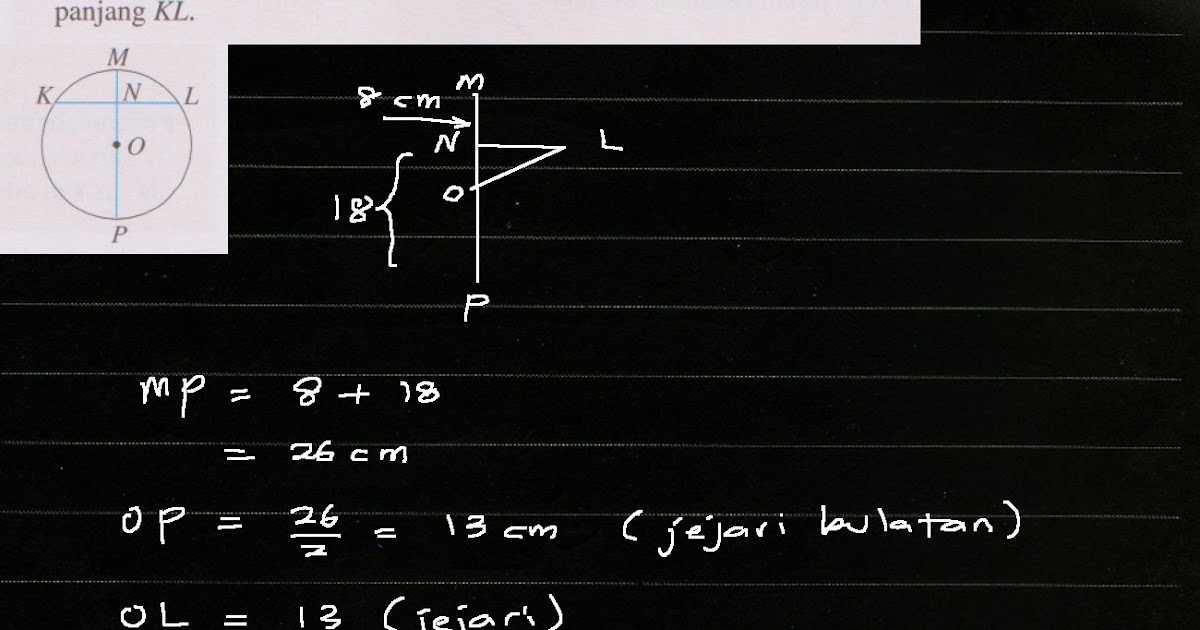 panjang KL.
M
K N L
O
P
M
8 cm
N L
O
18
P
MP = 8 + 18
= 26 cm
OP = 26/2 = 13 cm (jejari bulatan)
OL = 13 (jejari)